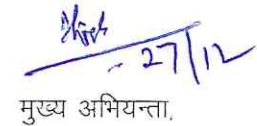 27/12
मुख्य अभियन्ता,